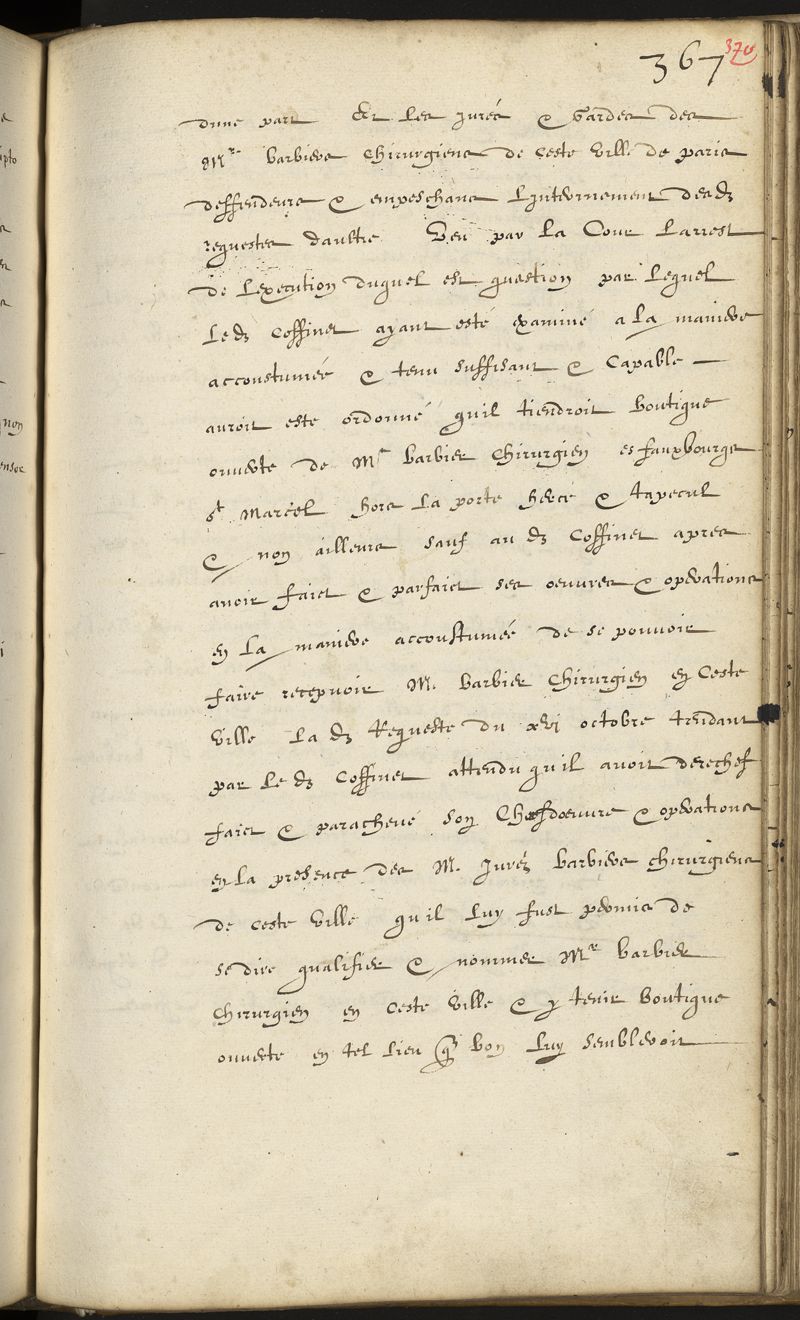 367 370
dune part Et les jurés & Gardes des
Mrs barbiers Chirurgiens de ceste ville de paris
deffendeurs & empeschans Linternement desd
requestes daultre Veu par La Cour Larrest
de Lexecution duquel est question par Lequel
Led Coffinet ayant esté examiné a La maniere
accoustumée & tenu suffisant & Capable
auroit esté ordonné quil tiendroit boutique
ouverte de Mr barbier Chirurgien es fauxbourgs
st Marcel hors La porte herce & tapecul
& non ailleurs sauf au d Coffinet apres
avoir faict & parfaict ses oeuvres & operations
en La maniere accoustumée de se pouvoir
faire recepvoir M. barbier Chirurgien en Ceste
ville La d Requeste du xvi octobre tendant
par Le d Coffinet attendu quil avoit derechef
faict & parachevé son Chefdoeuvre & operations
en La presence des M. Jurez barbiers chirurgiens
de ceste ville quil Luy fust permis de
se dire qualifier & nommer Mr barbier
Chirurgien en ceste ville & y tenir boutique
ouverte en tel Lieu q bon Luy sembleroit